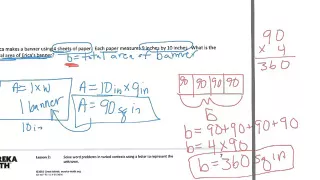 ica makes a banner using 4 sheets of paper. Each paper measures 9 inches by 10 inches. What is the
total area of Erica's banner?
b = total area of banner
90
× 4
360
A = l x w
1 banner
10 in
A = 10in x 9in
A = 90 sq in
90 90 90 90
b
b = 90 + 90 + 90 + 90
b = 4 x 90
b = 360 sq in
EUREKA
MATH
Lesson 3:
Solve word problems in varied contexts using a letter to represent the
unknown.